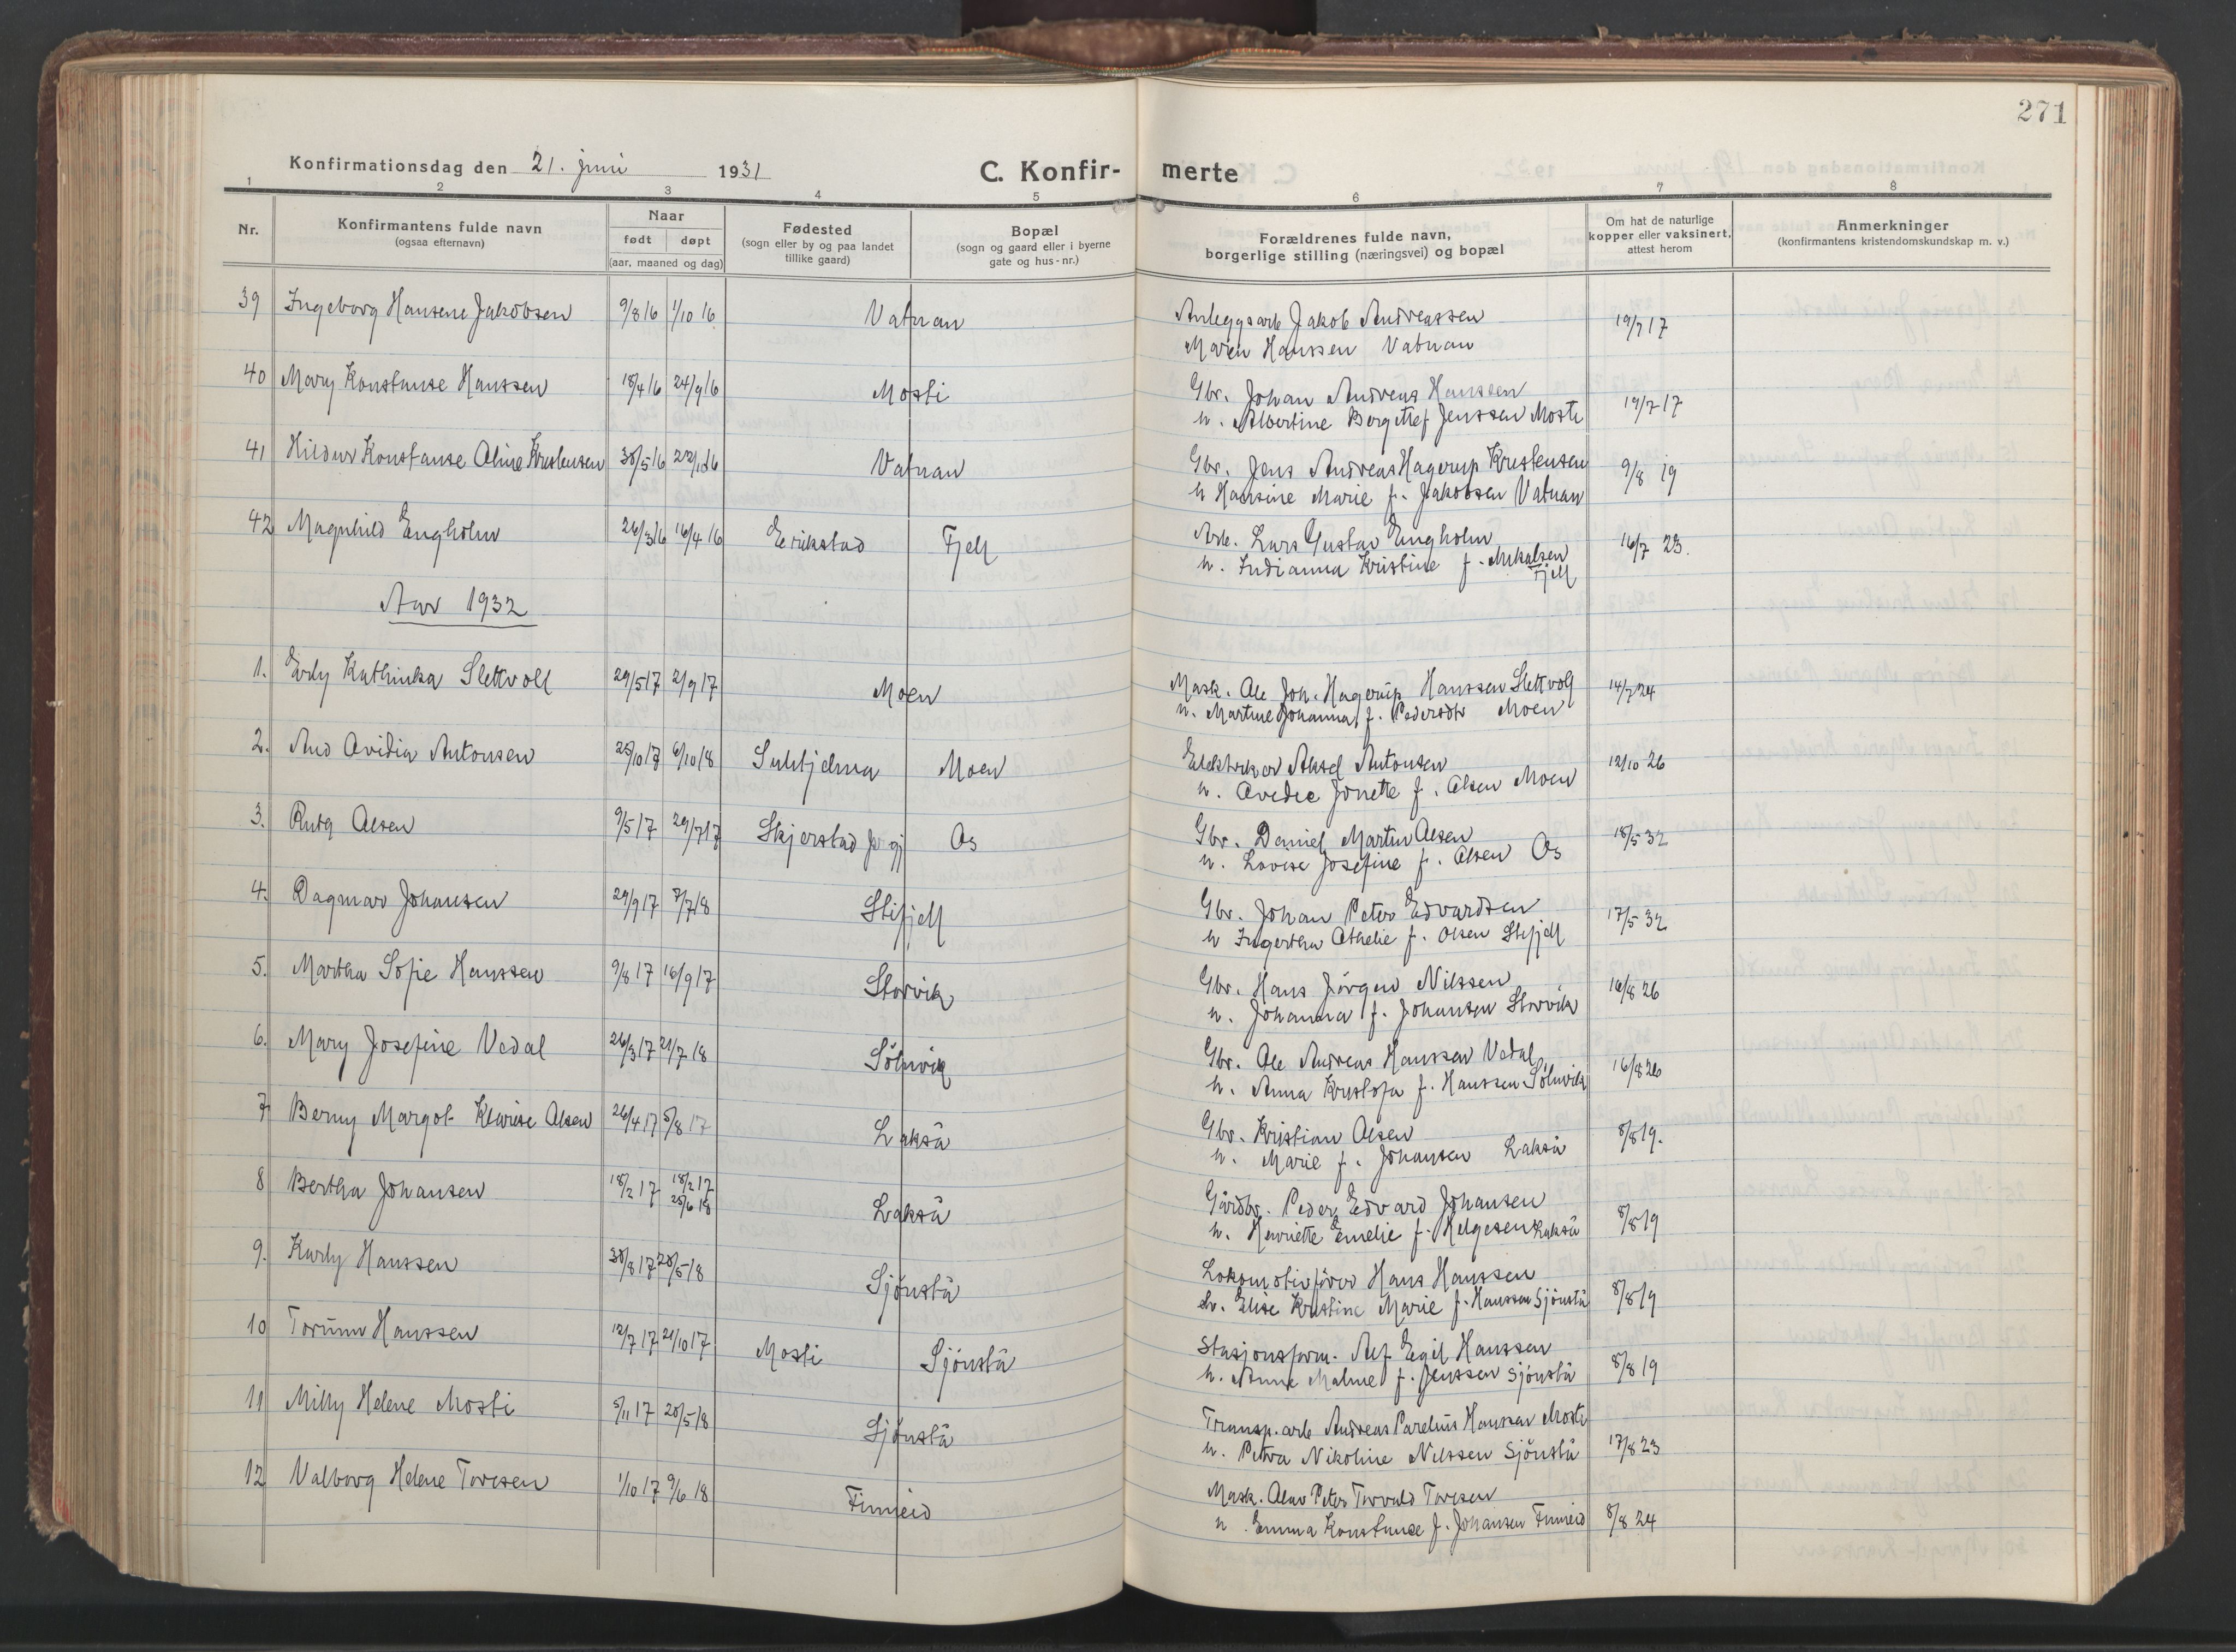 271
Konfirmationsdag den 21. juni 1931 C. Konfir- merte
1 2 3 4 5 6 7 8
Nr.
Konfirmantens fulde navn
(ogsaa efternavn)
Naar
født døpt
(aar, maaned og dag)
Fødested
(sogn eller by og paa landet
tillike gaard)
Bopæl
(sogn og gaard eller i byerne
gate og hus-nr.)
Forældrenes fulde navn,
borgerlige stilling (næringsvei) og bopæl
Om hat de naturlige
kopper eller vaksinert,
attest herom
Anmerkninger
(konfirmantens kristendomskundskap m. v.)
39 Ingeborg Hansene Jakobsen 9/8 16 1/10 16 Vatnan Anleggsarb Jakob Andreassen 19/7 17
Maren Hanssen Vatnan
40 Mary Konstanse Hanssen 18/4 16 24/9 16 Mosti Gbr. Johan Andreas Hanssen 19/7 17
h. Albertine Bergette f Jenssen Mosti
41 Hildur Konstanse Aline Kristensen 30/5 16 Vatnan Gbr. Jens Andreas Hagerup Kristensen 9/8 19
h Hansine Marie f. Jakobsen Vatnan
42 Magnhild Engholm 26/3 16 16/4 16 Erikstad Fjell Arb. Lars Gustav Engholm 16/7 23.
h. Indianna Kristine f. Mikalsen
Fjell
Aar 1932
1. Erly Kathinka Slettvoll 29/5 17 2/9 17 Moen Mask. Ole Joh. Hagerup Hanssen Slettvoll 14/7 24
h. Martine Johanna f. Pedersdtr Moen
2. Aud Ovidia Antonsen 25/10 17 6/10 18 Sulitjelma Moen Elektriker Aksel Antonsen 12/10 26
h. Ovedie Jonette f. Olsen Moen
3. Ruth Olsen 9/5 17 29/7 17 Skjerstad prgj Os Gbr. Daniel Martin Olsen 18/5 32
h. Lovise Josefine f. Olsen Os
4. Dagmar Johansen 29/9 17 7/7 18 Stifjell Gbr. Johan Peter Edvardsen 17/5 32
h Ingertha Athelie f. Olsen Stifjell
5. Martha Sofie Hanssen 9/8 17 16/9 17 Storvik Gbr. Hans Jörgen Nilssen 16/8 26
h. Johanna f. Johansen Storvik
6. Mary Josefine Vedal 26/3 17 21/7 18 Sölnvik Gbr. Ole Andreas Hanssen Vedal 16/8 26
h. Anna Kristofa f. Hanssen Sölnvik
7 Berny Margot Klarise Olsen 26/4 17 5/8 17 Lakså Gbr. Kristian Olsen 8/8 19.
h. Marie f. Johansen Lakså
8 Bertha Johansen 18/2 17 18/2 17 Lakså Gårdbr. Peder Edvard Johansen 8/8 19
25/6 18 h. Henriette Emelie f. Helgesen Lakså
9. Karly Hanssen 30/8 17 20/5 18 Sjönstå Lokomotivförer Hans Hanssen 8/8 19
h. Elise Kristine Marie f. Hanssen Sjönstå
10 Torunn Hanssen 12/7 17 21/10 17 Mosti Sjönstå Stasjonsform. Alf Egil Hanssen 8/8 19
h. Anna Maline f. Jenssen Sjönstå
11 Milly Helene Mosti 5/11 17 20/5 18 Sjönstå Transp. arb Andreas Parelius Hanssen Mosti 17/8 23
h. Petra Nikoline Nilssen Sjönstå
12 Valborg Helene Toresen 1/10 17 9/6 18 Finneid Mask. Olav Peter Torvald Toresen 8/8 24
h. Emma Konstanse f. Johansen Finneid